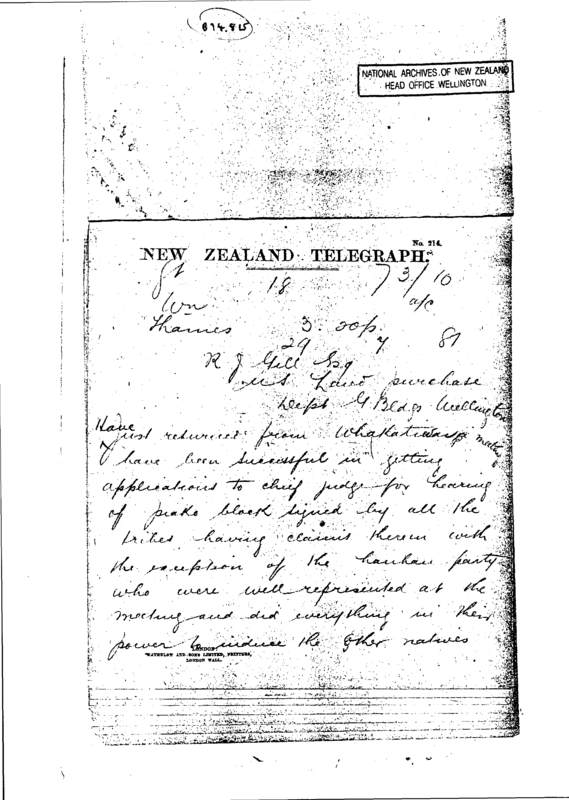 874.815
NATIONAL ARCHIVES OF NEW ZEALAND
HEAD OFFICE WELLINGTON
No. 214.
NEW ZEALAND TELEGRAPH.
18
7 3/10
Wn
a/c
Thames 3. 20p.
29 7 81
R J Gill Esq
Land purchase
Dept G Bldgs Wellington
Have
just returned from Whakatiwai
have been successful in getting
applications to chief judge for hearing
of piako block signed by all the
tribes having claims therein with
the exception of the hauhau party
who were well represented at the
meeting and did everything in their
power to induce the other natives
LONDON:
WATERLOW AND SONS LIMITED, PRINTERS,
LONDON WALL.